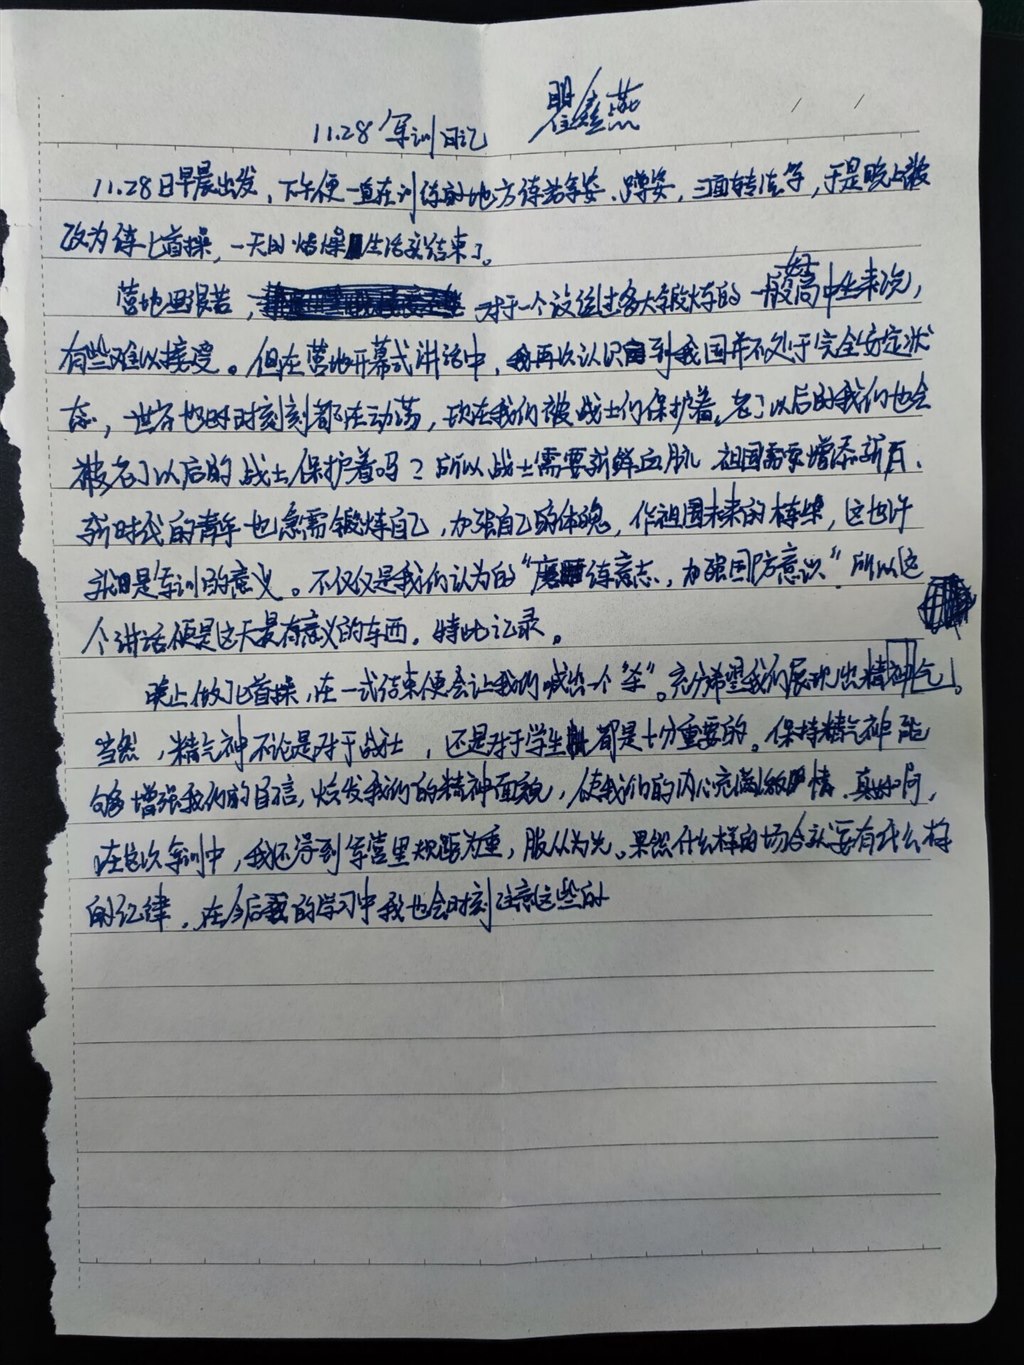 11.28 军训日记 瞿鑫燕
11.28日早晨出发，下午便一直在训练的地方练站军姿、蹲姿，三面转法等，于是晚上被
改为练匕首操，一天的 燥生活就结束了。
营地里很苦，对于一个没经过多大锻炼的一般女高中生来说，
有些难以接受。但在营地开幕式讲话中，我再次认识到我国并不处于完全安定状
态，世界也时时刻刻都在动荡，现在我们被战士们保护着，老了以后的我们也会
被老了以后的战士保护着吗？所以战士需要新鲜血脉 祖国需要增添新瓦、
新时代的青年也急需锻炼自己，加强自己的体魄，作祖国未来的栋梁，这也许
就是军训的意义。不仅仅是我们认为的“磨练意志，加强国防意识”。所以这
个讲话便是这天最有意义的东西。特此记录。
晚上做匕首操，在一式结束便会让我们喊出一个“杀”。充分希望我们展现出精神气。
当然，精气神不论是对于战士，还是对于学生都是十分重要的。保持精气神能
够增强我们的自信，焕发我们的精神面貌，使我们的内心充满激情。真好同，
在这次军训中，我还得到军营里规距为重，服从为先。果然什么样的场合就要有什么样
的纪律。在今后的学习中我也会时刻注意这些的